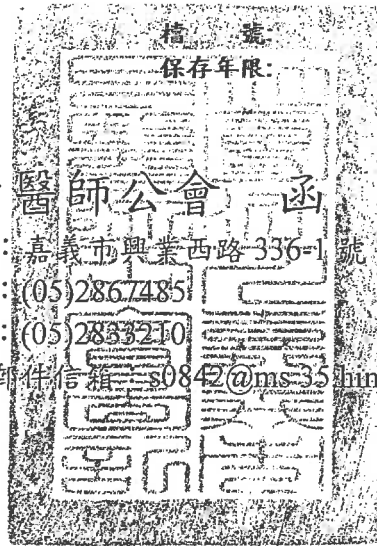 檔 號:
保存年限:
醫師公會 函
:嘉義市興業西路 336-1 號
:(05)2867485
:(05)2833210
郵件信箱:s0842@ms35.hin